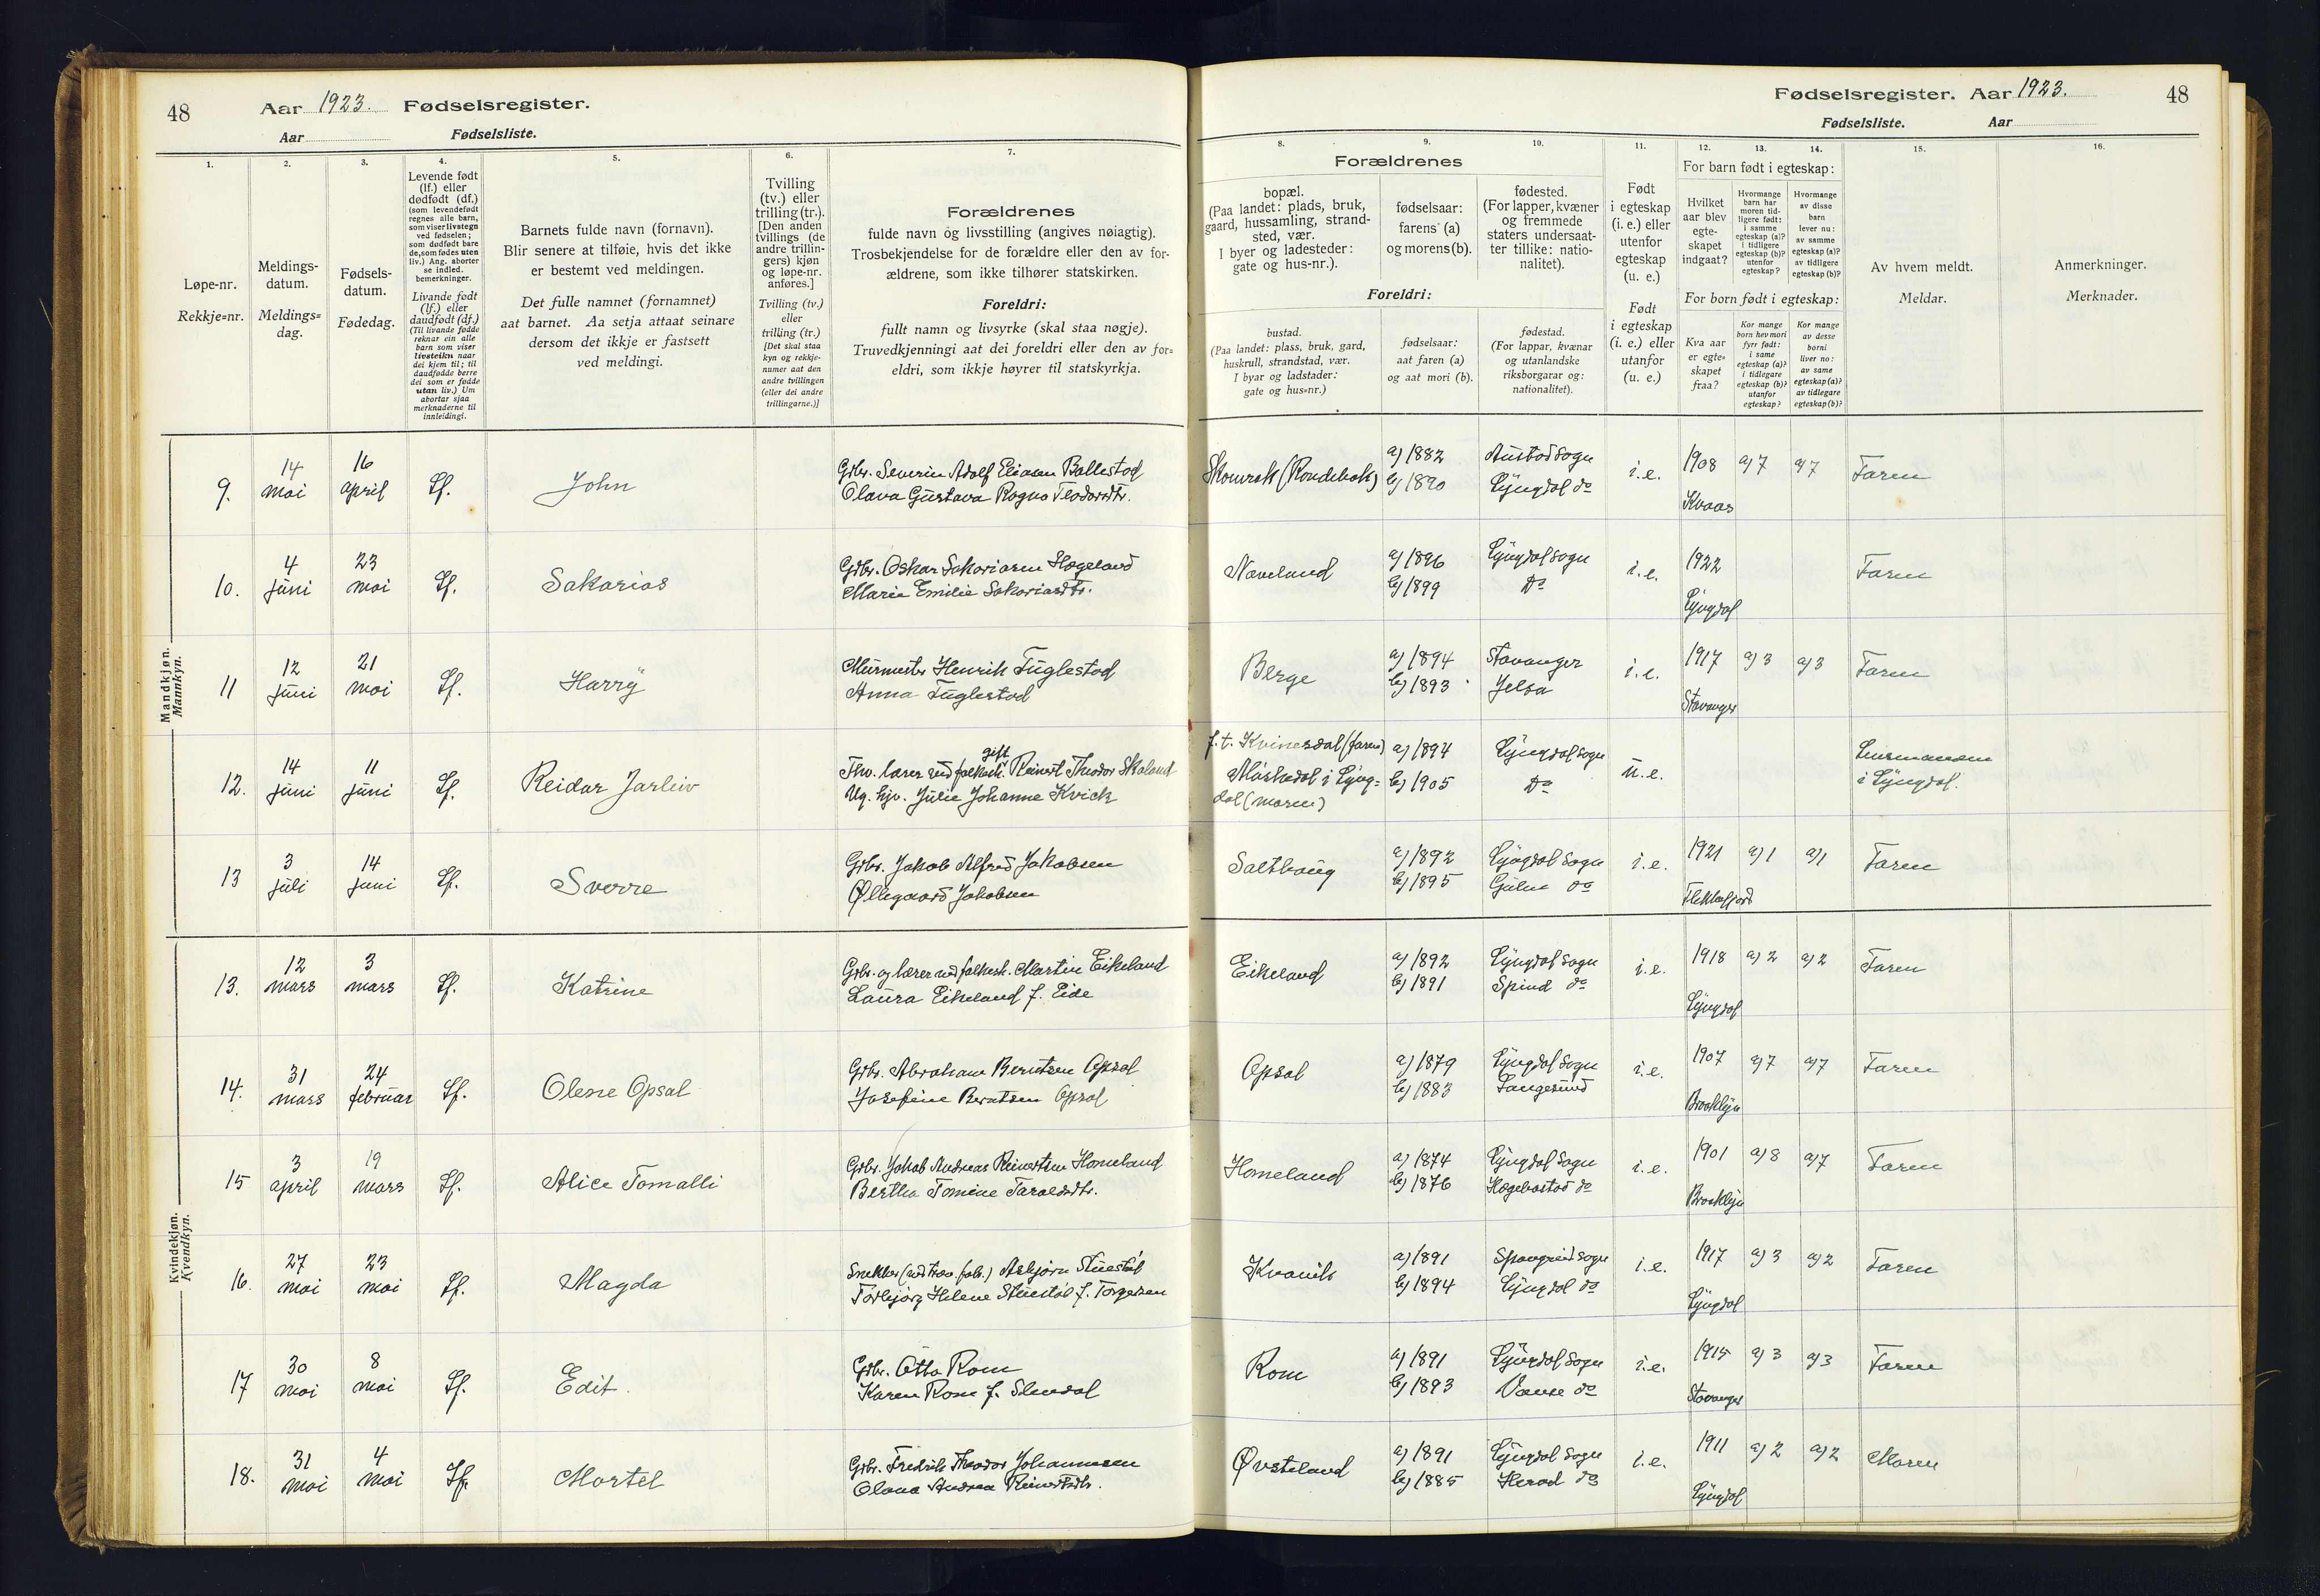 48
Aar 1923. Fødselsregister.
Aar Fødselsliste.
Fødselsregister. Aar 1923.
48
Fødselsliste. Aar
1.
2.
3.
4.
5.
6.
7.
8.
9.
10.
11.
12.
13.
14.
15.
16.
Løpe-nr.
Rekkje=nr.
Meldings-
datum.
Meldings=
dag.
Fødsels-
datum.
Fødedag.
Levende født
(lf.) eller
dødfødt (df.)
(som levendefødt
regnes alle barn,
som viser livstegn
ved fødselen;
som dødfødt bare
de, som fødes uten
liv.) Ang. aborter
se indled.
bemerkninger.
Livande født
(lf.) eller
daudfødt (df.)
(Til livande fødde
reknar ein alle
barn som viser
livsteikn naar
dei kjem til; til
daudfødde berre
dei som er fødde
utan liv.) Um
abortar sjaa
merknaderne til
innleidingi.
Barnets fulde navn (fornavn).
Blir senere at tilføie, hvis det ikke
er bestemt ved meldingen.
Det fulle namnet (fornamnet)
aat barnet. Aa setja attaat seinare
dersom det ikkje er fastsett
ved meldingi.
Tvilling
(tv.) eller
trilling (tr.).
[Den anden
tvillings (de
andre trillin-
gers) kjøn
og løpe-nr.
anføres.]
Tvilling (tv.)
eller
trilling (tr.)
[Det skal staa
kyn og rekkje-
numer aat den
andre tvillingen
(eller dei andre
trillingarne.)]
Forældrenes
fulde navn og livsstilling (angives nøiagtig).
Trosbekjendelse for de forældre eller den av for-
ældrene, som ikke tilhører statskirken.
Foreldri:
fullt namn og livsyrke (skal staa nøgje).
Truvedkjenningi aat dei foreldri eller den av for=
eldri, som ikkje høyrer til statskyrkja.
Forældrenes
bopæl.
(Paa landet: plads, bruk,
gaard, hussamling, strand-
sted, vær.
I byer og ladesteder:
gate og hus-nr.).
fødselsaar:
farens (a)
og morens (b).
fødested.
(For lapper, kvæner
og fremmede
staters undersaat-
ter tillike: natio-
nalitet).
Foreldri:
bustad.
(Paa landet: plass, bruk, gard,
huskrull, strandstad, vær.
I byar og ladstader:
gate og hus=nr.)
fødselsaar:
aat faren (a)
og aat mori (b).
fødestad.
(For lappar, kvænar
og utanlandske
riksborgarar og:
nationalitet).
Født
i egteskap
(i. e.) eller
utenfor
egteskap
(u. e.)
Født
i egteskap
(i. e.) eller
utanfor
(u. e.)
For barn født i egteskap:
Hvilket
aar blev
egte-
skapet
indgaat?
Hvormange
barn har
moren tid-
ligere født:
i samme
egteskap (a)?
i tidligere
egteskap (b)?
utenfor
egteskap?
Hvormange
av disse
barn
lever nu:
av samme
egteskap (a)?
av tidligere
egteskap (b)?
For born født i egteskap:
Kva aar
er egte-
skapet
fraa?
Kor mange
born hev mori
fyrr født:
i same
egteskap (a)?
i tidlegare
egteskap (b)?
utanfor
egteskap?
Kor mange
av desse
borni
liver no:
av same
egteskap (a)?
av tidlegare
egteskap (b)?
Av hvem meldt.
Meldar.
Anmerkninger.
Merknader.
Mandkjøn.
Mannkyn.
9. 14 mai 16 april Lf. John
Gdbr. Severin Adolf Eliasen Ballestad
Olava Gustava Ragna Teodorsdtr.
a) 1882 Austad sogn
b) 1890 Lyngdal do
i.e. 1908 a) 7 a) 7 Faren
Kvaas
10. 4 juni 23 mai Lf. Sakarias
Gdbr. Oskar Sakariasen Hægeland
Marie Emilie Sakariasdtr.
Naveland
a) 1896 Lyngdal sogn
b) 1899 Do
i.e. 1922 Faren
Lyngdal
11 12 juni 21 mai Lf. Harry
Murmester Henrik Fuglestad
Anna Fuglestad
Berge
a) 1894 Stavanger
b) 1893 Jelsa
i.e. 1917 a) 3 a) 3 Faren
Stavanger
12. 14 juni 11 juni Lf. Reidar Jarleiv
gift
Fhv. lærer ved folkesk. Reinert Theodor Skoland
Ug. hjv. Julie Johanne Kvick
f.t. Kvinesdal (faren)
Møskedal i Lyng=
dal (moren)
a) 1894 Lyngdal sogn
b) 1905 Do
u.e.
Lensmannen
i Lyngdal.
13 3 juli 14 juni Lf. Sverre
Gdbr. Jakob Alfred Jakobsen
Øllegaard Jakobsen
Salthaug
a) 1892 Lyngdal sogn
b) 1895 do
i.e. 1921 a) 1 a) 1 Faren
Flekkefjord
Kvindekjøn.
Kvendkyn.
13. 12 mars 3 mars Lf. Katrine
Gdbr. og lærer ved folkesk. Martin Eikeland
Laura Eikeland f. Eide
Eikeland
a) 1892 Lyngdal sogn
b) 1891 Spind do
i.e. 1918 a) 2 a) 2 Faren
Lyngdal
14. 31 mars 24 februar Lf. Olene Opsal
Gdbr. Abraham Berntsen Opsal
Josefine Berntsen Opsal
Opsal
a) 1879 Lyngdal sogn
b) 1883 Langesund
i.e. 1907 a) 7 a) 7 Faren
Brooklyn
15 3 april 19 mars Lf. Alice Tomalli
Gdbr. Jakob Andreas Reinertsen Homeland
Bertha Tomine Taraldsdtr.
Homeland
a) 1874 Lyngdal sogn
b) 1876 Hægebostad do
i.e. 1901 a) 8 a) 7 Faren
Brooklyn
16. 27 mai 23 mai Lf. Magda
Snekker (ved træv.fabr.) Asbjørn Stuestøl
Torbjørg Helene Stuestøl f. Torgersen
Kvavik
a) 1891 Spangreid sogn
b) 1894 Lyngdal do
i.e. 1917 a) 3 a) 2 Faren
Lyngdal
17 30 mai 8 mai Lf. Edit.
Gdbr. Otto Rom
Karen Rom f.
Rom
a) 1891 Lyngdal sogn
b) 1893 Vanse do
i.e. 1915 a) 3 a) 3 Faren
Stavanger
18. 31 mai 4 mai Lf. Martel
Gdbr. Fredrik Theodor Johannesen
Olana Andrea Reinertsdtr.
Øvsteland
a) 1891 Lyngdal sogn
b) 1885 Herad do
i.e. 1911 a) 2 a) 2 Moren
Lyngdal